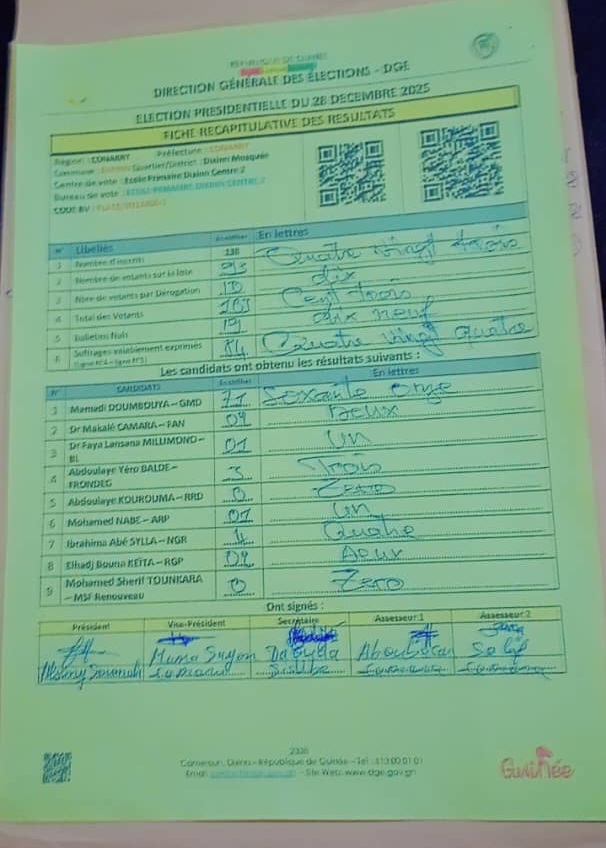 RÉPUBLIQUE DE GUINÉE
DIRECTION GÉNÉRALE DES ÉLECTIONS - DGE
ELECTION PRESIDENTIELLE DU 28 DECEMBRE 2025
FICHE RECAPITULATIVE DES RESULTATS
Région : CONAKRY Préfecture : CONAKRY
Commune : DIXINN Quartier/District : Dixinn Mosquée
Centre de vote : Ecole Primaire Dixinn Centre 2
Bureau de vote : ECOLE PRIMAIRE DIXINN CENTRE 2
CODE BV :
N° Libellés En chiffres En lettres
1 Nombre d'inscrits 138
2 Nombre de votants sur la liste 93 Quatre vingt trois
3 Nbre de votants par Dérogation 10 dix
4 Total des Votants 103 Cent trois
5 Bulletins Nuls 19 dix neuf
6 Suffrages valablement exprimés 84 Quatre vingt quatre
(Ligne N°4 - ligne N°5)
Les candidats ont obtenu les résultats suivants :
N° CANDIDATS En chiffres En lettres
1 Mamadi DOUMBOUYA – GMD 71 Soxante onze
2 Dr Makalé CAMARA – FAN Deux
3 Dr Faya Lansana MILLIMONO – BL 01 Un
4 Abdoulaye Yéro BALDE – FRONDEG 3 Trois
5 Abdoulaye KOUROUMA – RRD 0 Zero
6 Mohamed NABE – ARP 01 Un
7 Ibrahima Abé SYLLA – NGR 4 Quatre
8 Elhadj Bouna KEÏTA – RGP Deux
9 Mohamed Sherif TOUNKARA – MSF Renouveau 0 Zero
Ont signés :
Président Vice-Président Secrétaire Assesseur 1 Assesseur 2
Aboubacar
2336
Cameroun, Dixinn – République de Guinée – Tel :
Email: – Site Web: www.dge.gov.gn
Guinée